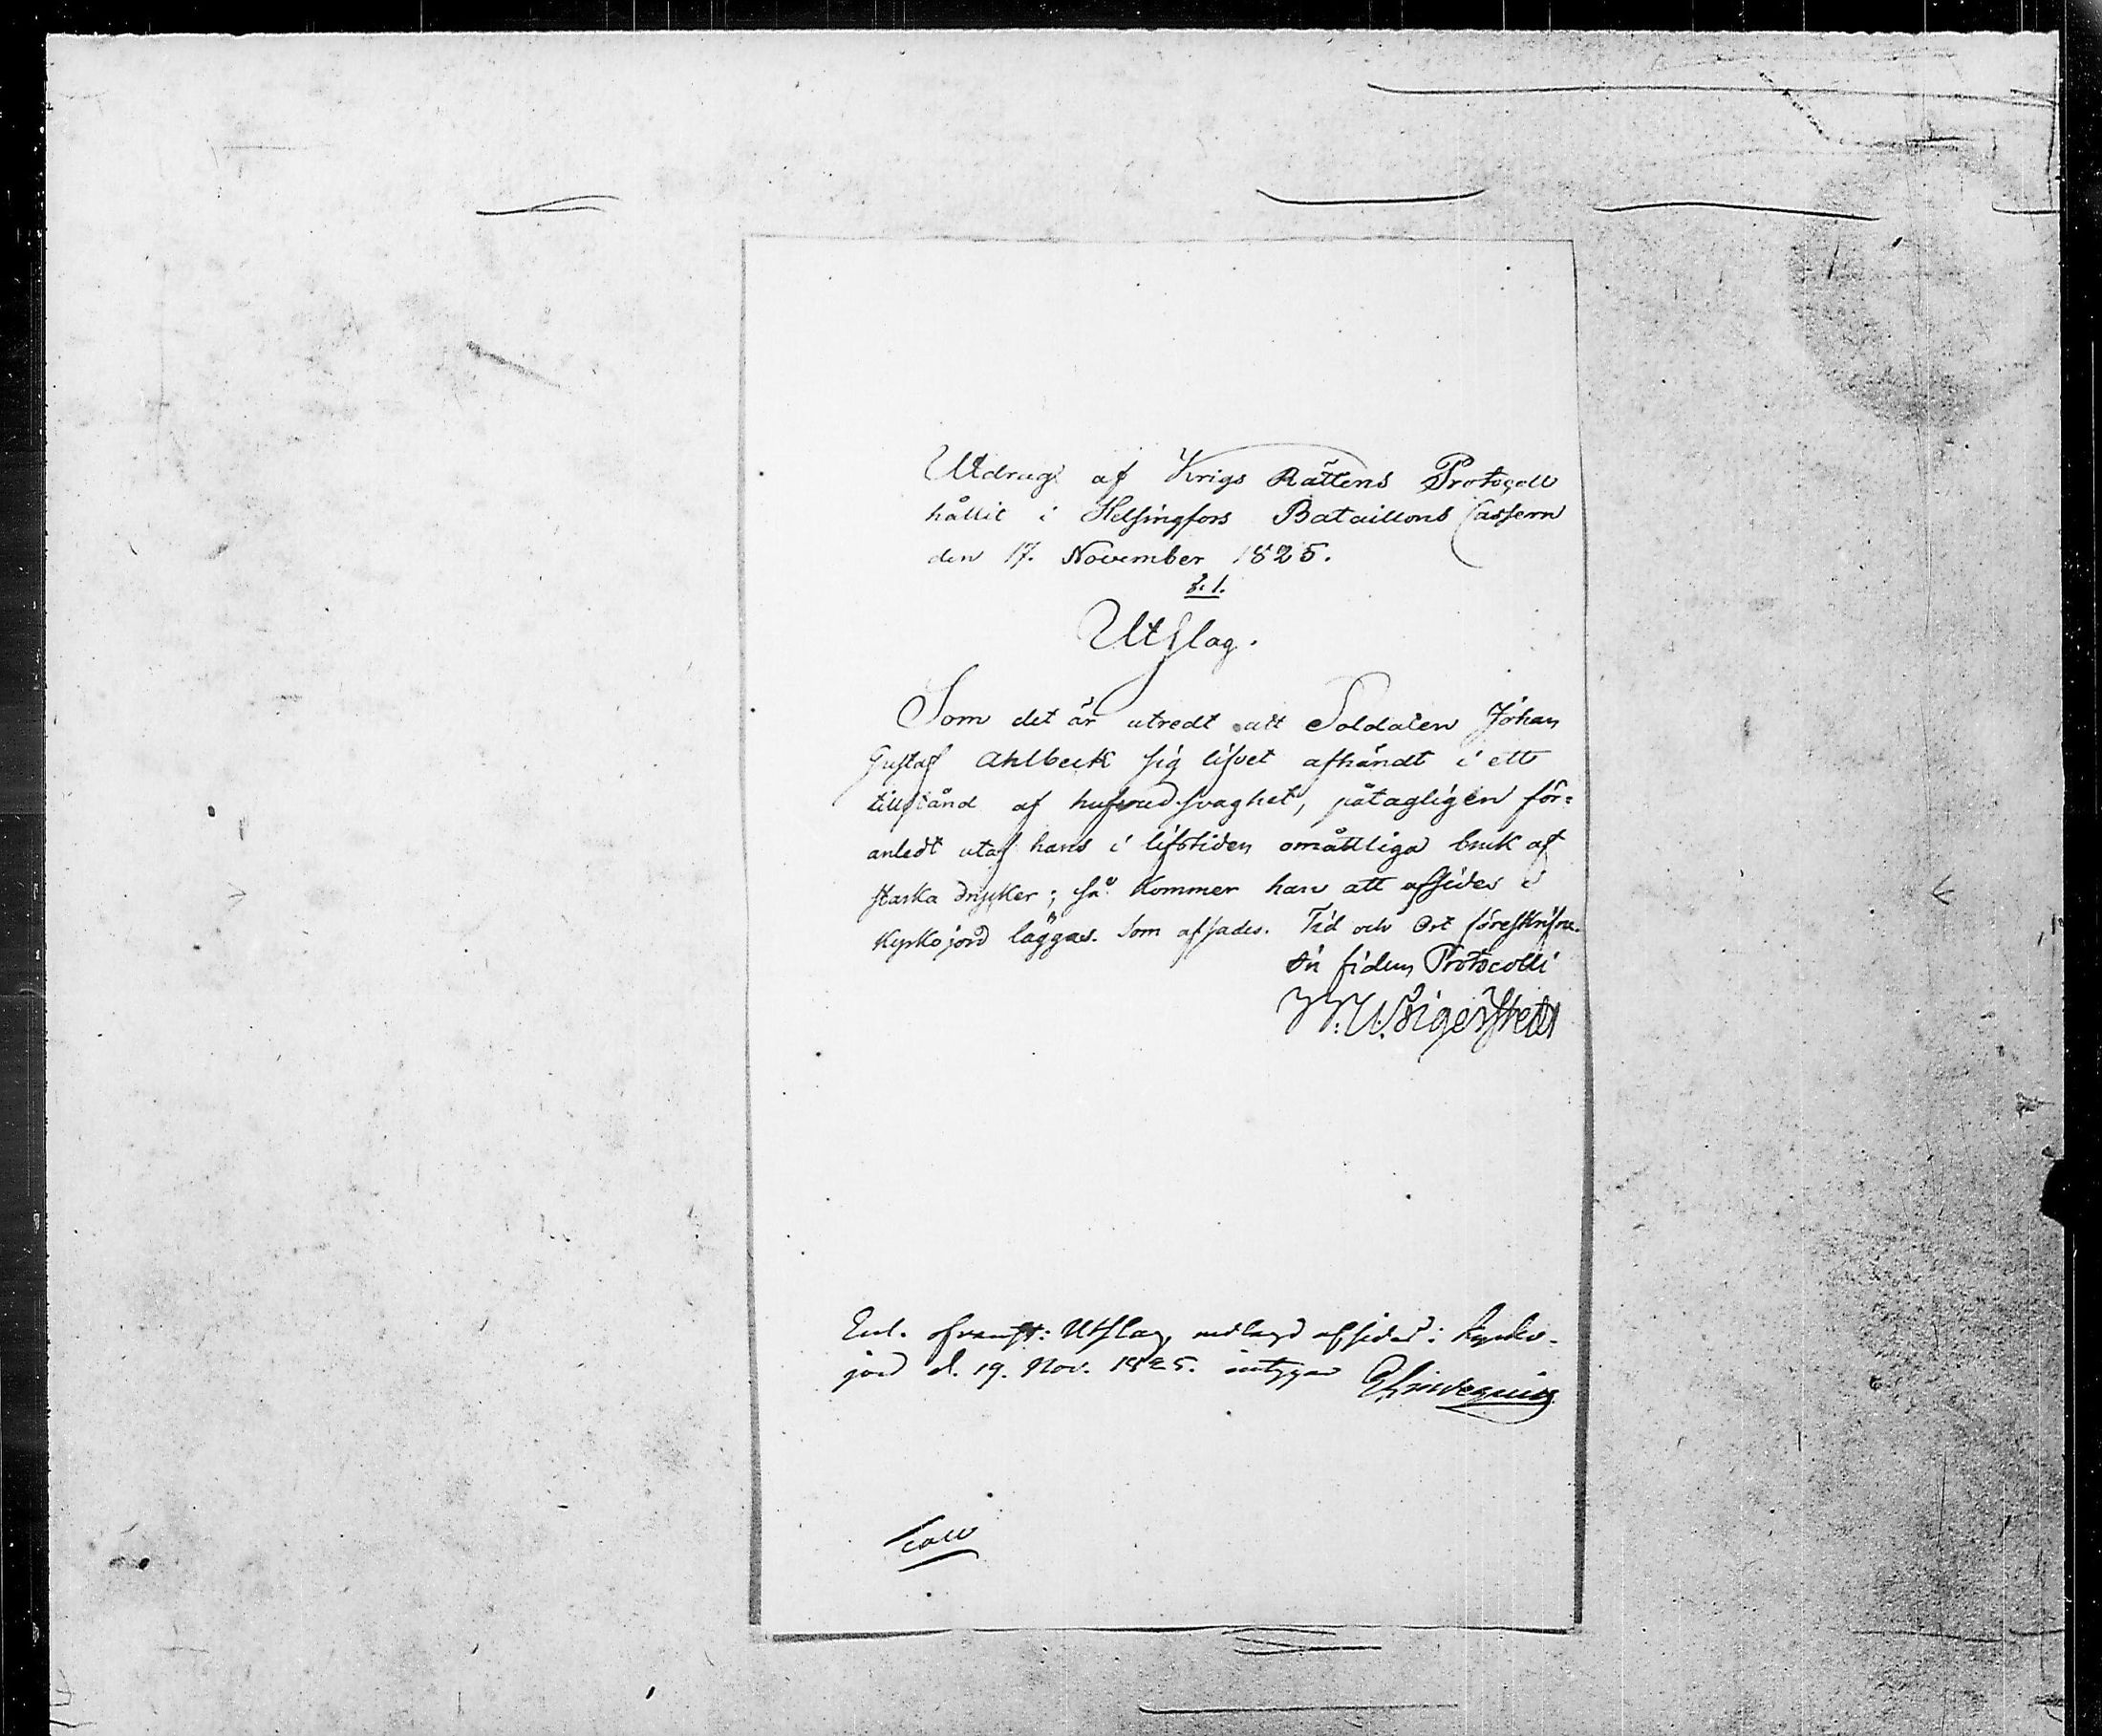 Utdrag af Krigs Rättens Protocoll
hållit i Helsingfors Bataillons Cassern
den 17. November 1825.
§. 1.
Utslag.
Som det är utredt att Soldaten Johan
Gustaf Ahlbeck sig lifvet afhändt i ett
tillstånd af hufvudsvaghet, påtagligen för=
anledt utaf hans i lifstiden omåttliga bruk af
starka drycker; så kommer han att afsides i
Kyrkojord läggas. Som afsades. Tid och Ort föreskrifne.
In fidem Protocolli
W. U. Sigerstedt
Enl. ofvanst: Utslag, nedlagd afsides i kyrko-
jord d. 19. Nov. 1825. intygar
Coll